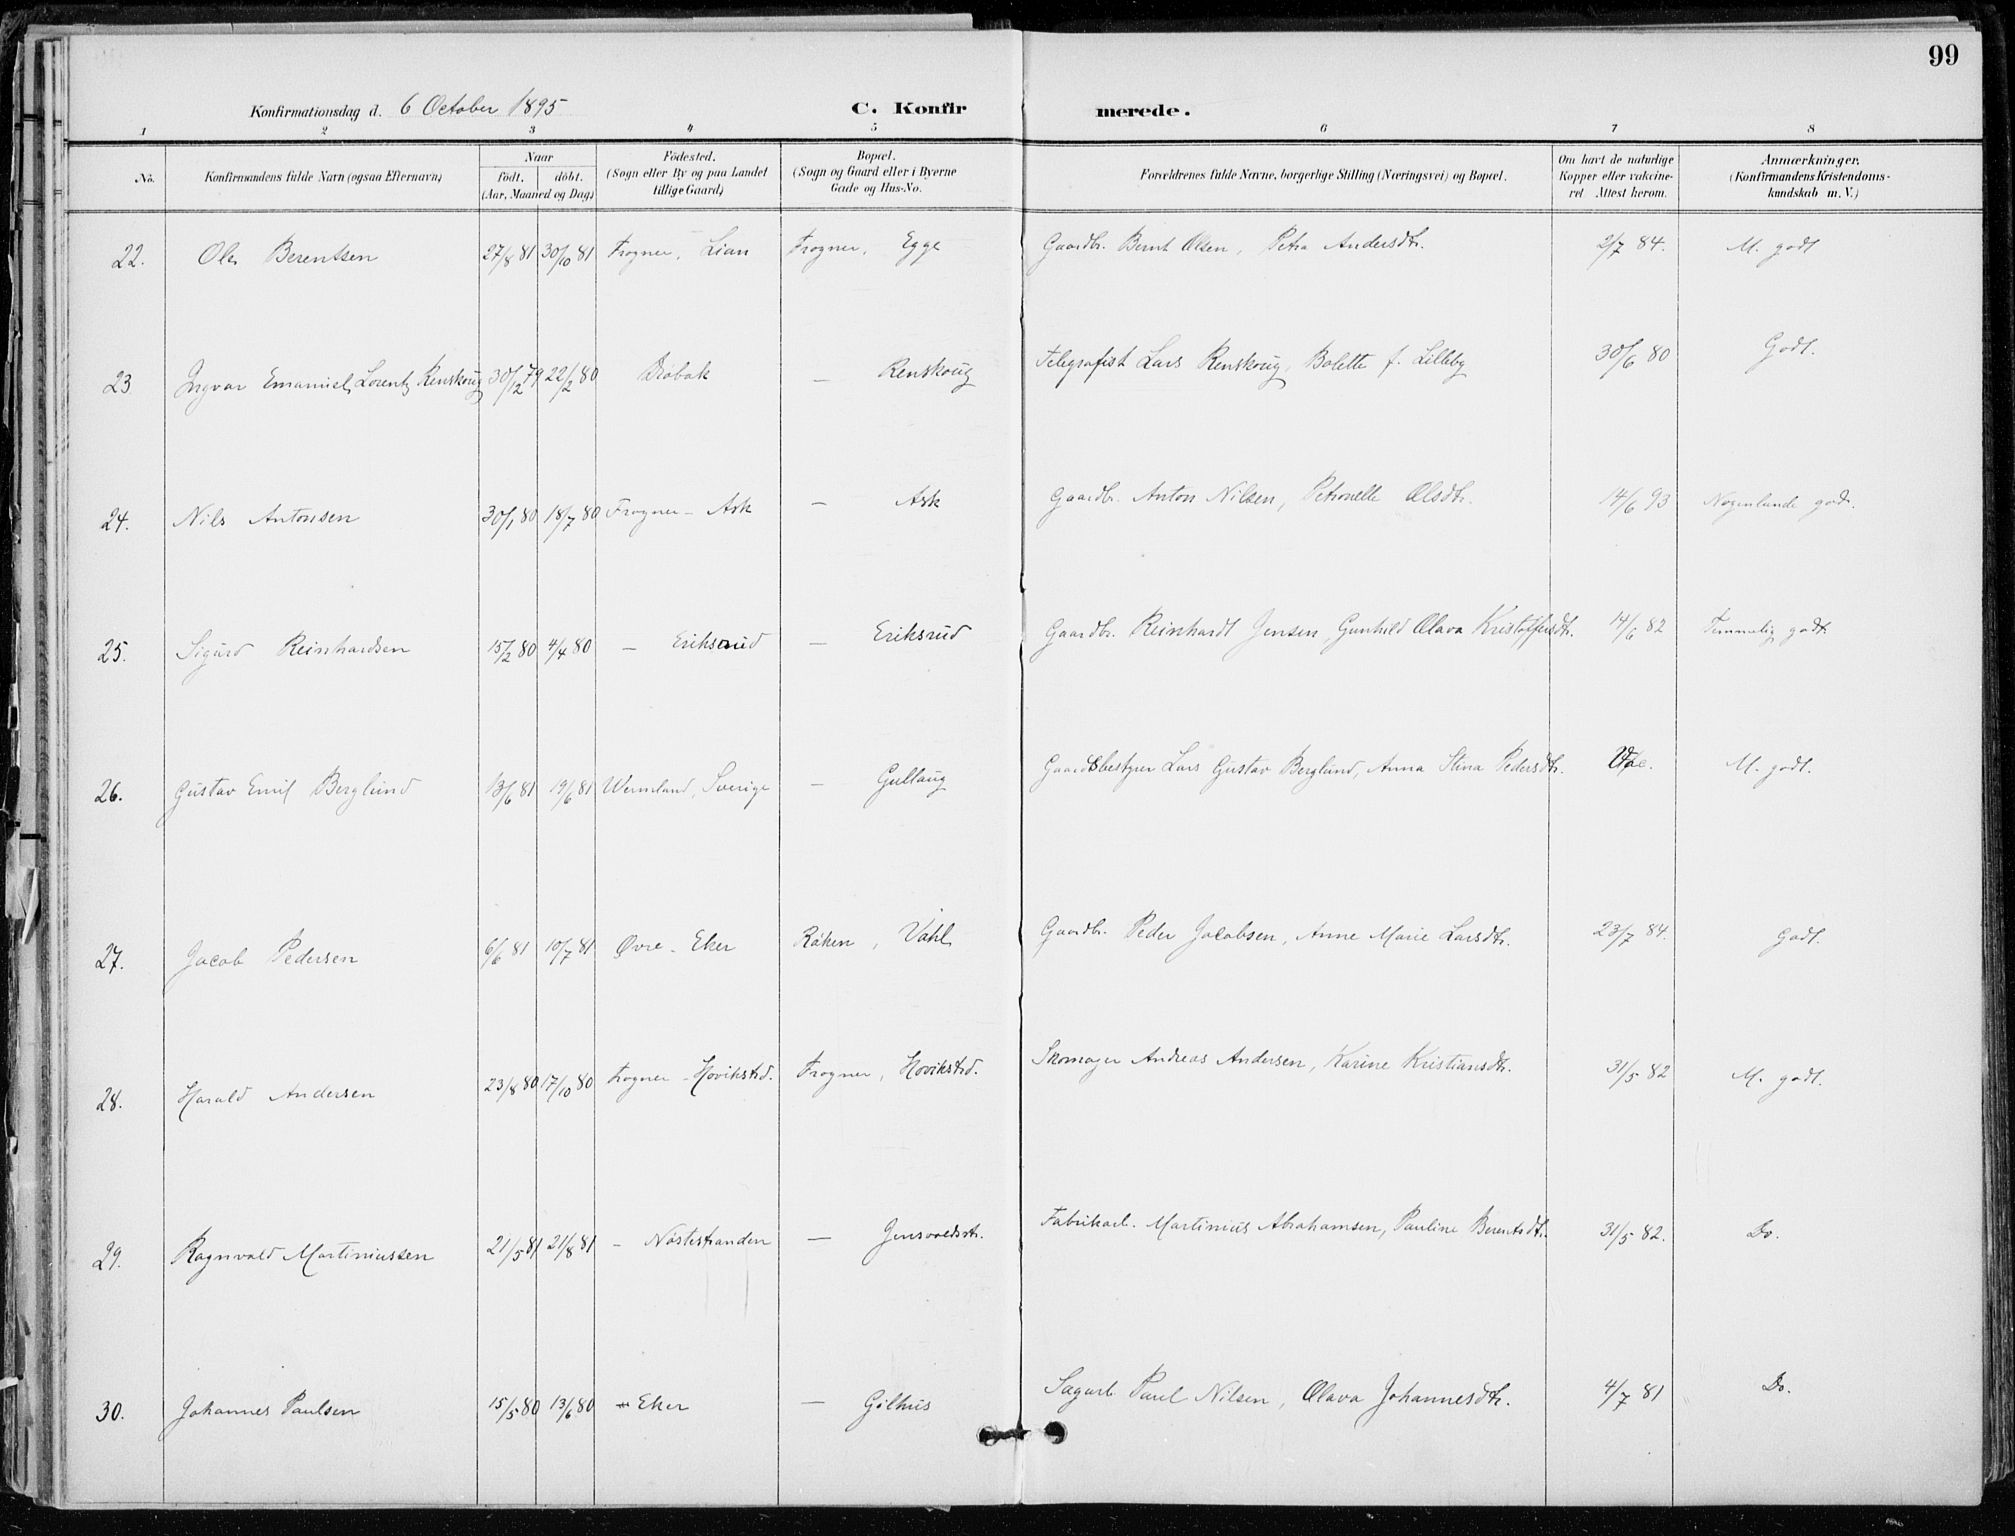 99
Konfirmationsdag d. 6 October 1895 C. Konfir merede.
1 2 3 4 5 6 7 8
No. Konfirmandens fulde Navn (ogsaa Efternavn) Naar født. døbt. (Aar, Maaned og Dag) Födested. (Sogn eller By og paa Landet tillige Gaard) Bopæl. (Sogn og Gaard eller i Byerne Gade og Hus-No. Forældrenes fulde Navne, borgerlige Stilling (Næringsvei) og Bopæl. Om havt de naturlige Kopper eller vakcineret Attest herom. Anmærkninger. (Konfirmandens Kristendomskundskab m. V.)
22. Ole Berentsen 27/8 81 30/10 81 Frogner, Lian Frogner, Egge Gaardbr. Bernt Olsen, Petra Andersdtr. 2/7 84. M. godt
23 Ingvar Emanuel Lorentz Renskoug 30/12 79 22/2 80 Dröbak — Renskoug Telegrafist Lars Renskoug, Bolette f. Lilleby 30/6 80 Godt.
24. Nils Antonsen 30/1 80 18/7 80 Frogner - Ask — Ask Gaardbr. Anton Nilsen, Petronelle Olsdtr. 14/6 93 Nogenlunde godt.
25. Sigurd Reinhardsen 15/2 80 4/4 80 — Eriksrud — Eriksrud Gaardbr. Reinhardt Jensen, Gunhild Olava Kristoffersdtr. 14/6 82 Temmelig godt.
26. Gustav Emil Berglund 13/6 81 19/6 81 Wermland, Sverige — Gullaug Gaardsbestyrer Lars Gustav Berglund, Anna Stina Pedersdtr. M. godt.
27. Jacob Pedersen 6/6 81 10/7 81 Øvre - Eker Röken, Vahl Gaardbr. Peder Jacobsen, Anne Marie Larsdtr. 23/7 84. Godt.
28. Harald Andersen 23/8 80 17/10 80 Frogner - Hovikstrd. Frogner, Hovikstrd. Skomager Andreas Andersen, Karine Kristiansdtr. 31/5 82 M. godt.
29. Ragnvald Martiniussen 21/5 81 21/8 81 — Nöstestranden — Jensvoldstr. Fabrikarb. Martinius Abrahamsen, Pauline Berentsdtr. 31/5 82. Do.
30. Johannes Paulsen 15/5 80 13/6 80 Eker — Gilhus Sagarb. Paul Nilsen, Olava Johannesdtr. 4/7 81 Do.